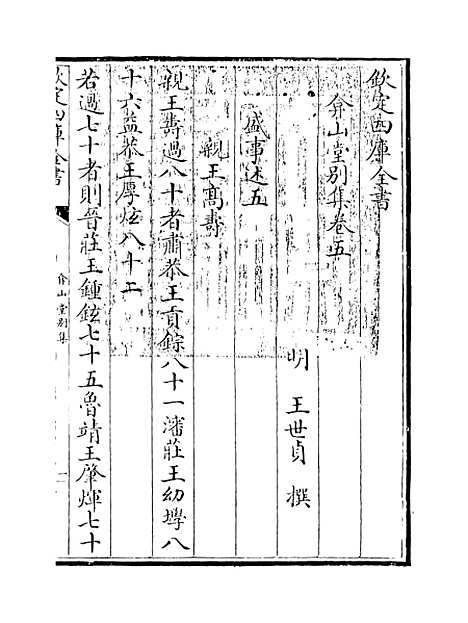 欽定四庫全書
弇山堂别集卷五
明 王世貞 撰
盛事述五
親王髙夀
親王夀過八十者肅恭王貢錝八十一瀋莊王幼㙾八
十六益恭王厚炫八十二
若過七十者則晉莊王鍾鉉七十五魯靖王肇煇七十
欽定四庫全書
弇山堂别集